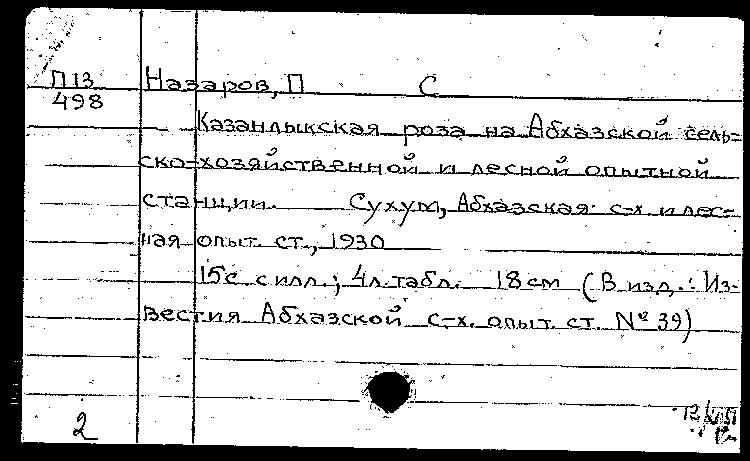 П13 Назаров, П С
498
Казанлыкская роза на Абхазской сель=
ско-хозяйственной и лесной опытной
станции. Сухум, Абхазская с-х. и лес=
ная опыт. ст., 1930
15с с илл.; 4л.табл. 18см (В изд.: Из-
вестия Абхазской с-х. опыт. ст. № 39)
2